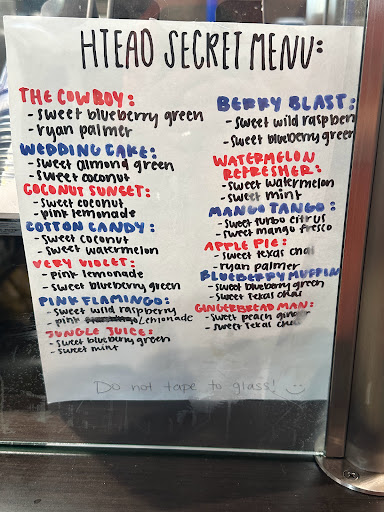 HTEAO SECRET MENU:
THE COWBOY:
- sweet blueberry green
- ryan palmer
WEDDING CAKE:
- sweet almond green
- sweet coconut
COCONUT SUNSET:
- sweet coconut
- pink lemonade
COTTON CANDY:
- sweet coconut
- sweet watermelon
VERY VIOLET:
- pink lemonade
- sweet blueberry green
PINK FLAMINGO:
- sweet wild raspberry
- pink /lemonade
JUNGLE JUICE:
- sweet blueberry green
- sweet mint
BERRY BLAST:
- sweet wild raspberry
- sweet blueberry green
WATERMELON
REFRESHER:
- sweet watermelon
- sweet mint
MANGO TANGO:
- sweet turbo citrus
- sweet mango fresco
APPLE PIE:
- sweet texas chai
- ryan palmer
BLUEBERRY MUFFIN
- sweet blueberry green
- sweet texas chai
GINGERBREAD MAN:
- sweet peach ginger
- sweet texas chai
Do not tape to glass! :)